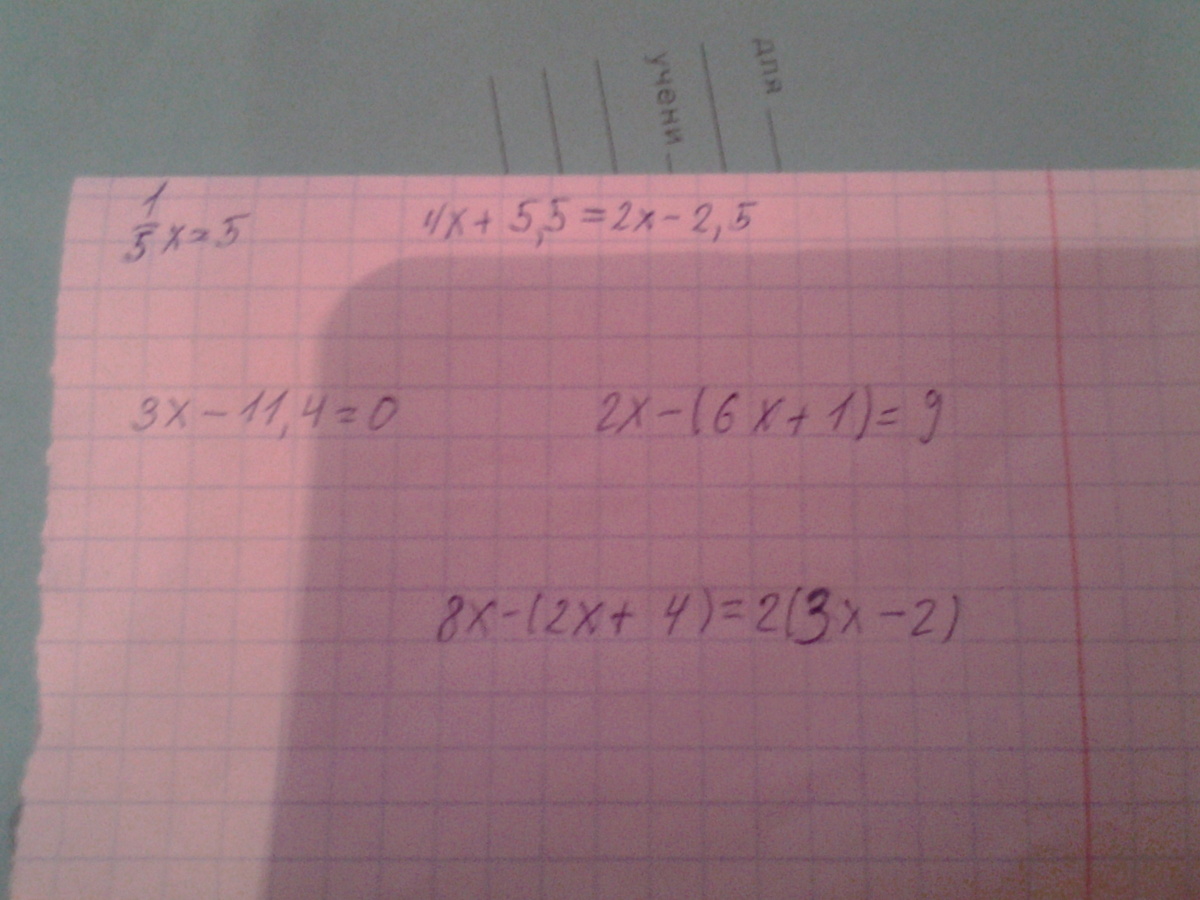 для
учени
1/5 x = 5
4x + 5,5 = 2x - 2,5
3x - 11,4 = 0
2x - (6x + 1) = 9
8x - (2x + 4) = 2(3x - 2)